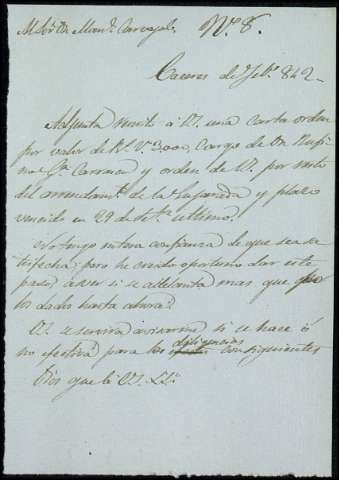 M. Sor. Dn. Man.l Carvajal. N.º 8.
Caceres de Feb.º 842.
Adjunta remito á V. una carta orden
por valor de R.s V.n 3,000, cargo de Dn.
G.a Carrasca y orden de V. por resto
del arrendam.to de la y plazo
vencido en 29 de Set.e ultimo.
No tengo entera confianza de que sea sa
tisfecha; pero he creido oportuno dar este
paso á ver si se adelanta mas que
los dados hasta ahora.
V. se servirá avisarme si se hace ó
diligencias
no efectiva para las consiguientes
Dios gue. á V.